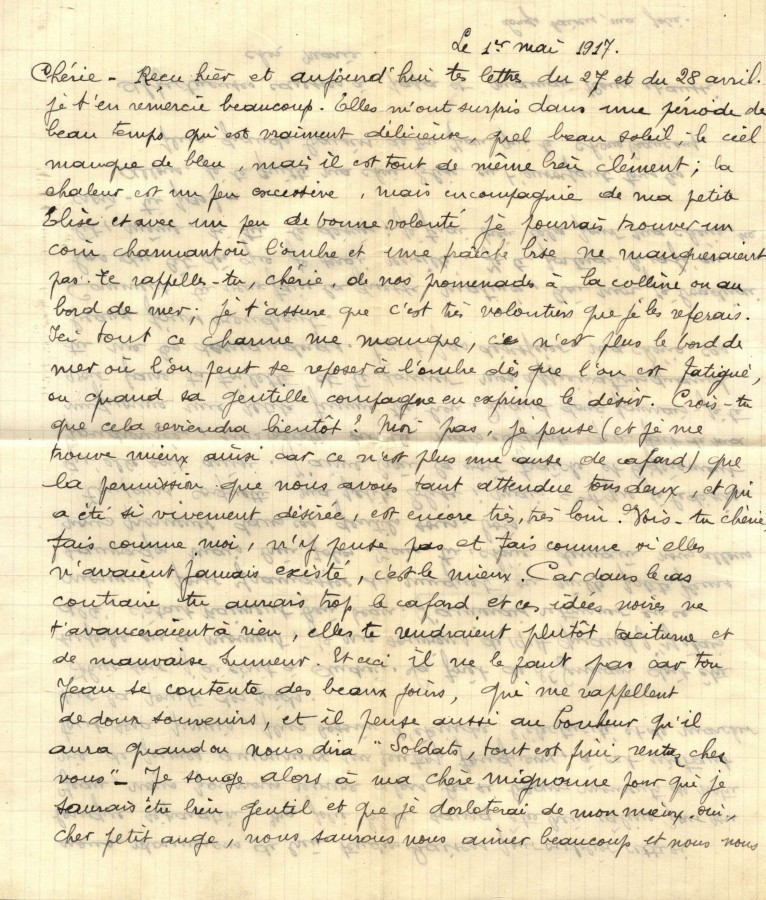 Le 1er mai 1917.
Chérie - Reçu hier et aujourd'hui tes lettres du 27 et du 28 avril.
je t'en remercie beaucoup. Elles m'ont surpris dans une période de
beau temps qui est vraiment délicieuse, quel beau soleil, le ciel
manque de bleu, mais il est tout de même bien clément; la
chaleur est un peu excessive, mais en compagnie de ma petite
Elise et avec un peu de bonne volonté je pourrais trouver un
coin charmant où l'ombre et une fraîche brise ne manqueraient
pas. te rappelles-tu, chérie, de nos promenades à la colline ou au
bord de mer; je t'assure que c'est très volontiers que je les referais.
Ici tout ce charme me manque, ce n'est plus le bord de
mer où l'on peut se reposer à l'ombre dès que l'on est fatigué,
ou quand sa gentille compagne en exprime le désir. Crois-tu
que cela reviendra bientôt? Moi pas, je pense (et je me
trouve mieux ainsi car ce n'est plus une cause de cafard) que
la permission que nous avons tant attendue tous deux, et qui
a été si vivement désirée, est encore très, très loin. Vois-tu chérie,
fais comme moi, n'y pense pas et fais comme si elles
n'avaient jamais existé, c'est le mieux. Car dans le cas
contraire tu aurais trop le cafard et ces idées noires ne
t'avanceraient à rien, elles te rendraient plutôt taciturne et
de mauvaise humeur. Et ceci il ne le faut pas car ton
Jean se contente des beaux jours, qui me rappellent
de doux souvenirs, et il pense aussi au bonheur qu'il
aura quand on nous dira "Soldats, tout est fini, rentrez chez
vous" - Je songe alors à ma chère mignonne pour qui je
saurais être bien gentil et que je dorloterai de mon mieux. oui,
cher petit ange, nous saurons nous aimer beaucoup et nous nous